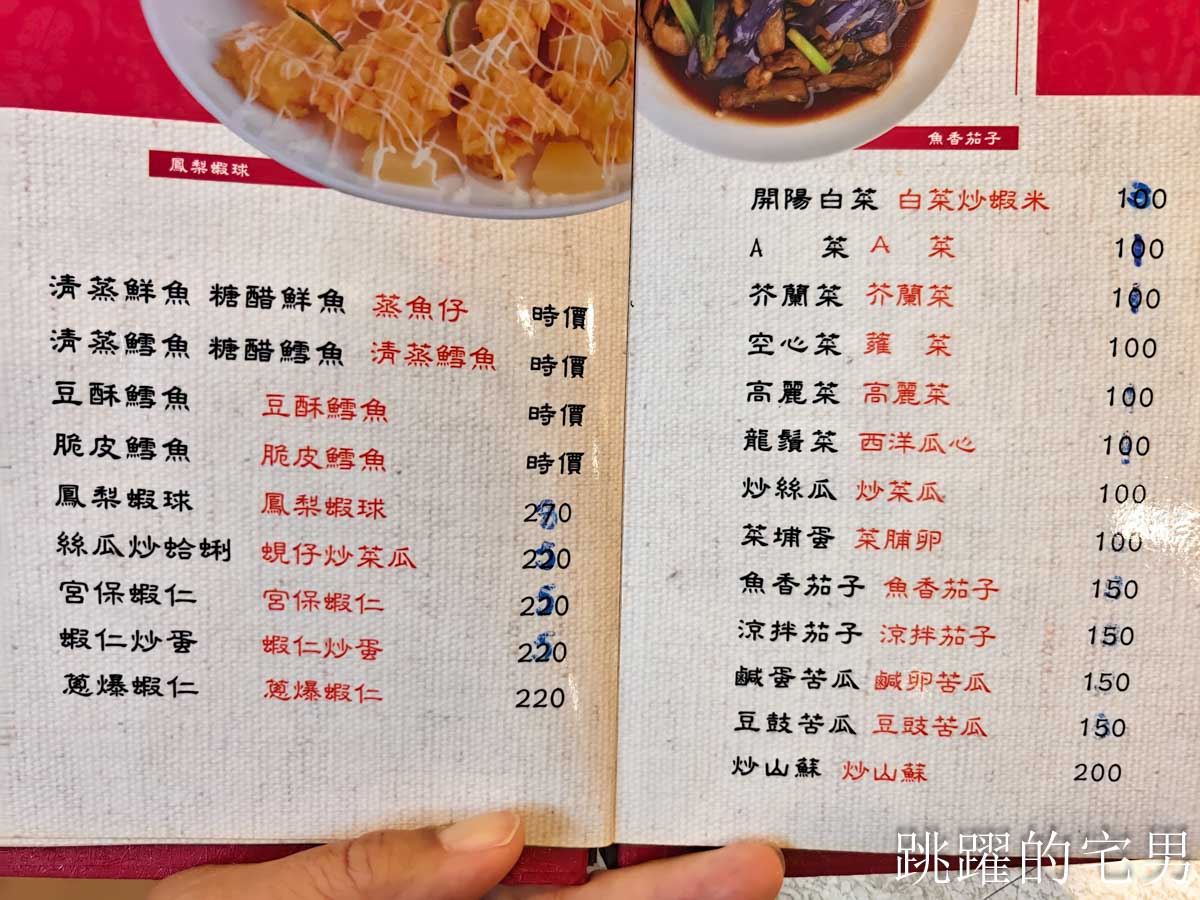 鳳梨蝦球
清蒸鮮魚 糖醋鮮魚 蒸魚仔 時價
清蒸鱈魚 糖醋鱈魚 清蒸鱈魚 時價
豆酥鱈魚 豆酥鱈魚 時價
脆皮鱈魚 脆皮鱈魚 時價
鳳梨蝦球 鳳梨蝦球 270
絲瓜炒蛤蜊 蜆仔炒菜瓜 220
宮保蝦仁 宮保蝦仁 220
蝦仁炒蛋 蝦仁炒蛋 220
蔥爆蝦仁 蔥爆蝦仁 220
魚香茄子
開陽白菜 白菜炒蝦米 100
A 菜 A 菜 100
芥蘭菜 芥蘭菜 100
空心菜 蕹 菜 100
高麗菜 高麗菜 100
龍鬚菜 西洋瓜心 100
炒絲瓜 炒菜瓜 100
菜埔蛋 菜脯卵 100
魚香茄子 魚香茄子 150
涼拌茄子 涼拌茄子 150
鹹蛋苦瓜 鹹卵苦瓜 150
豆鼓苦瓜 豆豉苦瓜 150
炒山蘇 炒山蘇 200
跳躍的宅男